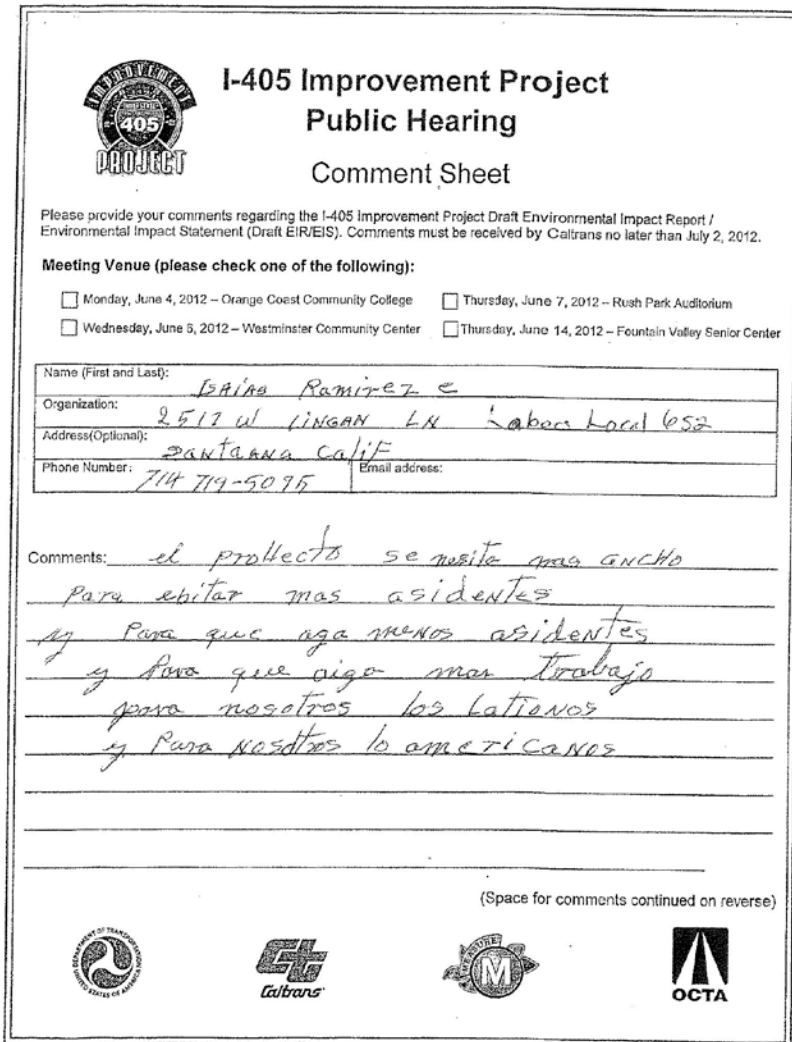 IMPROVEMENT
INTERSTATE
405
PROJECT
I-405 Improvement Project
Public Hearing
Comment Sheet
Please provide your comments regarding the I-405 Improvement Project Draft Environmental Impact Report /
Environmental Impact Statement (Draft EIR/EIS). Comments must be received by Caltrans no later than July 2, 2012.
Meeting Venue (please check one of the following):
Monday, June 4, 2012 – Orange Coast Community College
Thursday, June 7, 2012 – Rush Park Auditorium
Wednesday, June 6, 2012 – Westminster Community Center
Thursday, June 14, 2012 – Fountain Valley Senior Center
Name (First and Last): Isaias Ramirez c
Organization: 2517 W LINGAN LN Labor Local 652
Address(Optional): santaana Calif
Phone Number: 714 719-5095 Email address:
Comments: el prollecto se nesita mas ancho
Para ebitar mas asidentes
y Para que aga menos asidentes
y Para que aiga mas trabajo
para nosotros los Lationos
y Para Nosotros lo americanos
(Space for comments continued on reverse)
DEPARTMENT OF TRANSPORTATION
UNITED STATES OF AMERICA
Caltrans
MEASURE
M
OCTA